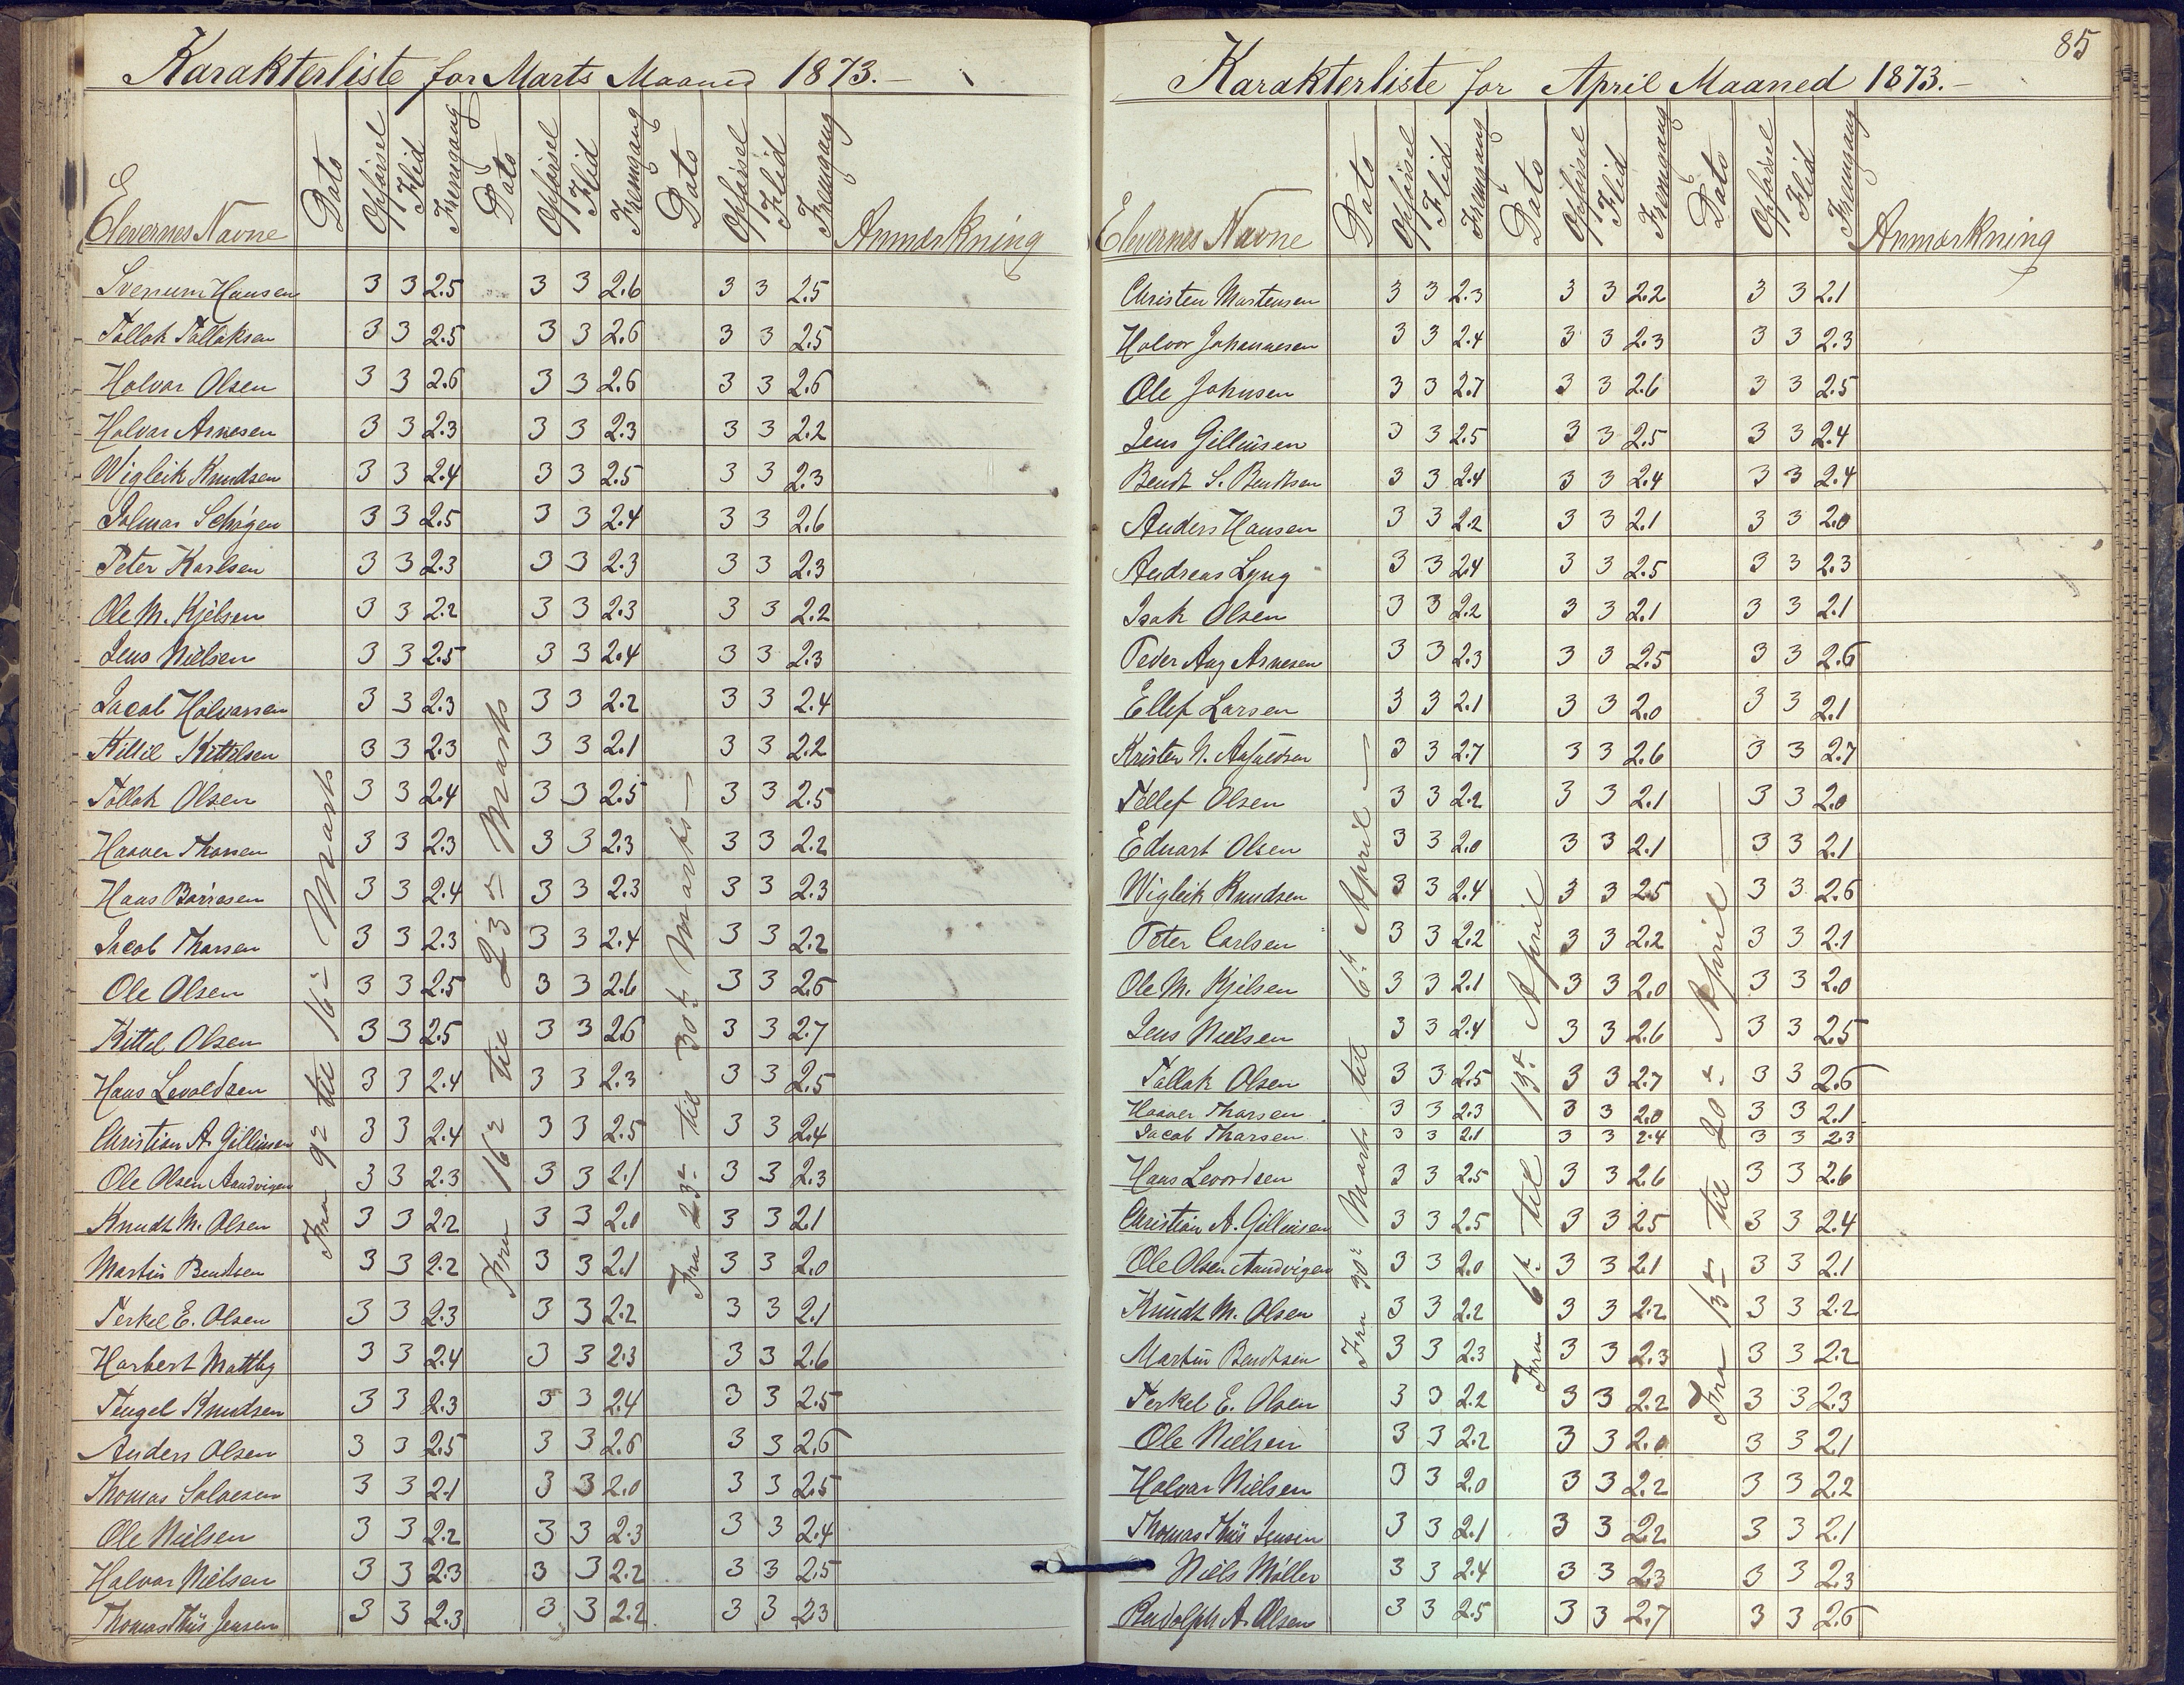 Karakterliste for Marts Maaned 1873.-
Elevernes Navne Dato Opførsel Flid Fremgang Dato Opførsel Flid Fremgang Dato Opførsel Flid Fremgang Anmærkning
Fra 9de til 16de Marts
Fra 16de til 23de Marts
Fra 23de til 30te Marts
Svenum Hansen 3 3 2.5 3 3 2.6 3 3 2.5
Tallak Tallaksen 3 3 2.5 3 3 2.6 3 3 2.5
Halvar Olsen 3 3 2.6 3 3 2.6 3 3 2.6
Halvar Arnesen 3 3 2.3 3 3 2.3 3 3 2.2
Wigleik Knudsen 3 3 2.4 3 3 2.5 3 3 2.3
3 3 2.5 3 3 2.4 3 3 2.6
Peter Karlsen 3 3 2.3 3 3 2.3 3 3 2.3
Ole M. Kjelsen 3 3 2.2 3 3 2.3 3 3 2.2
Jens Nielsen 3 3 2.5 3 3 2.4 3 3 2.3
Jacob Halvarsen 3 3 2.3 3 3 2.2 3 3 2.4
Kittil Kittilsen 3 3 2.3 3 3 2.1 3 3 2.2
Tallak Olsen 3 3 2.4 3 3 2.5 3 3 2.5
Haaver Tharsen 3 3 2.3 3 3 2.3 3 3 2.2
Hans Børresen 3 3 2.4 3 3 2.3 3 3 2.3
Jacob Tharsen 3 3 2.3 3 3 2.4 3 3 2.2
Ole Olsen 3 3 2.5 3 3 2.6 3 3 2.6
Kittel Olsen 3 3 2.5 3 3 2.6 3 3 2.7
Hans Levoldsen 3 3 2.4 3 3 2.3 3 3 2.5
Christian A. Gillinsen 3 3 2.4 3 3 2.5 3 3 2.4
Ole Olsen Aandvigen 3 3 2.3 3 3 2.1 3 3 2.3
Knudt M. Olsen 3 3 2.2 3 3 2.0 3 3 2.1
Martin Bendtsen 3 3 2.2 3 3 2.1 3 3 2.0
Terkel E. Olsen 3 3 2.3 3 3 2.2 3 3 2.1
Harbert Mattby 3 3 2.4 3 3 2.3 3 3 2.6
Tengel Knudsen 3 3 2.3 3 3 2.4 3 3 2.5
Anders Olsen 3 3 2.5 3 3 2.6 3 3 2.6
Thomas Salvesen 3 3 2.1 3 3 2.0 3 3 2.5
Ole Nielsen 3 3 2.2 3 3 2.3 3 3 2.4
Halvar Nielsen 3 3 2.3 3 3 2.2 3 3 2.5
Thomas Thiis Jensen 3 3 2.3 3 3 2.2 3 3 2.3
85
Karakterliste for April Maaned 1873.-
Elevernes Navne Dato Opførsel Flid Fremgang Dato Opførsel Flid Fremgang Dato Opførsel Flid Fremgang Anmærkning
Fra 30te Marts til 6te April
Fra 6te til 13de April
Fra 13de til 20de April
Christen Martensen 3 3 2.3 3 3 2.2 3 3 2.1
Halvor Johannesen 3 3 2.4 3 3 2.3 3 3 2.3
Ole Johnsen 3 3 2.7 3 3 2.6 3 3 2.5
Jens Gillinsen 3 3 2.5 3 3 2.5 3 3 2.4
Bendt S. Bendtsen 3 3 2.4 3 3 2.4 3 3 2.4
Anders Hansen 3 3 2.2 3 3 2.1 3 3 2.0
Andreas Lyng 3 3 2.4 3 3 2.5 3 3 2.3
Isak Olsen 3 3 2.2 3 3 2.1 3 3 2.1
Peder Aug Arnesen 3 3 2.3 3 3 2.5 3 3 2.6
Ellef Larsen 3 3 2.1 3 3 2.0 3 3 2.1
Kristen N. 3 3 2.7 3 3 2.6 3 3 2.7
Tellef Olsen 3 3 2.2 3 3 2.1 3 3 2.0
Eduart Olsen 3 3 2.0 3 3 2.1 3 3 2.1
Wigleik Knudsen 3 3 2.4 3 3 2.5 3 3 2.6
Peter Carlsen 3 3 2.2 3 3 2.2 3 3 2.1
Ole M. Kjelsen 3 3 2.1 3 3 2.0 3 3 2.0
Jens Nielsen 3 3 2.4 3 3 2.6 3 3 2.5
Tallak Olsen 3 3 2.5 3 3 2.7 3 3 2.6
Haaver Tharsen 3 3 2.3 3 3 2.0 3 3 2.1
Jacob Tharsen 3 3 2.1 3 3 2.4 3 3 2.3
Hans Levordsen 3 3 2.5 3 3 2.6 3 3 2.6
Christian A. Gillinsen 3 3 2.5 3 3 2.5 3 3 2.4
Ole Olsen Aandvigen 3 3 2.0 3 3 2.1 3 3 2.1
Knudt M. Olsen 3 3 2.2 3 3 2.2 3 3 2.2
Martin Bendtsen 3 3 2.3 3 3 2.3 3 3 2.2
Terkel E. Olsen 3 3 2.2 3 3 2.2 3 3 2.3
Ole Nielsen 3 3 2.2 3 3 2.0 3 3 2.1
Halvar Nielsen 3 3 2.0 3 3 2.2 3 3 2.2
Thomas Thiis Jensen 3 3 2.1 3 3 2.2 3 3 2.1
Niels Møller 3 3 2.4 3 3 2.3 3 3 2.3
Rudolph A. Olsen 3 3 2.5 3 3 2.7 3 3 2.6